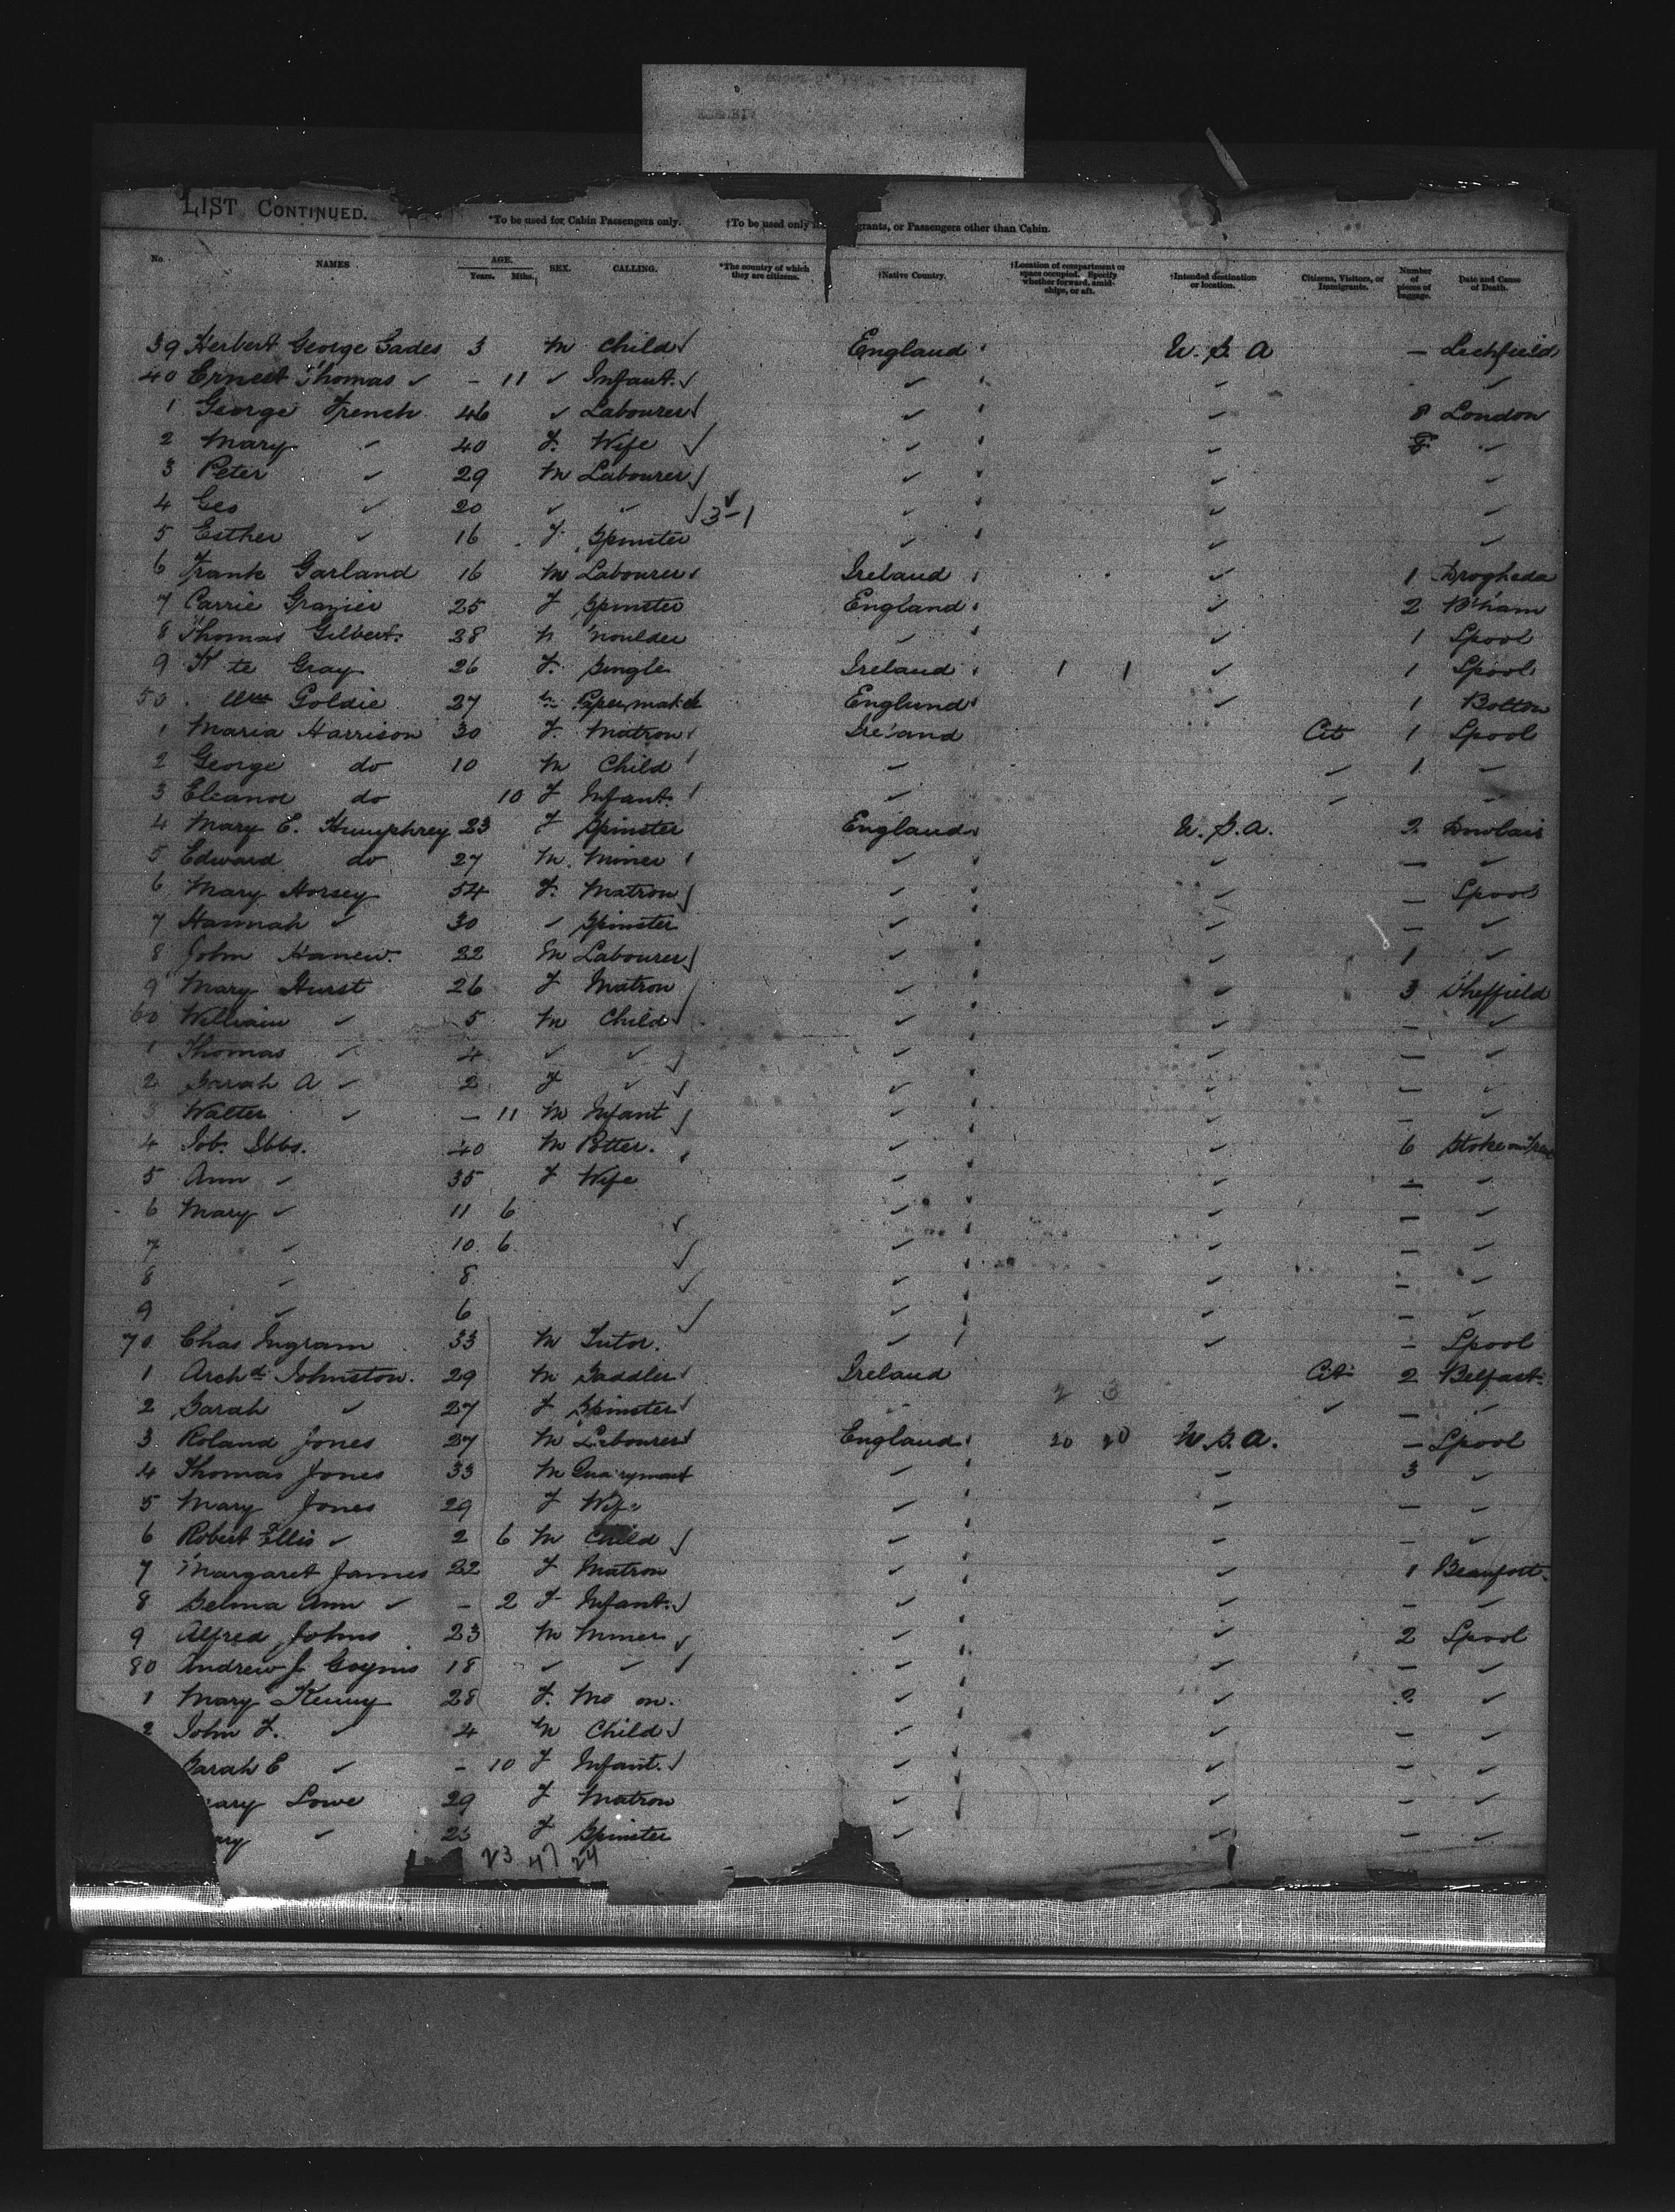 LIST CONTINUED.
*To be used for Cabin Passengers only. †To be used only grants, or Passengers other than Cabin.
No. NAMES AGE. Years. Mths. SEX. CALLING. *The country of which they are citizens. †Native Country. †Location of compartment or space occupied. Specify whether forward, amidships, or aft. †Intended destination or location. Citizens, Visitors, or Immigrants. Number of pieces of baggage. Date and Cause of Death.
39 Herbert George Gades 3 M Child England U.S.A — Lichfield
40 Ernest Thomas ✓ - 11 ✓ Infant. ✓ ✓ ✓
1 George French 46 ✓ Labourer ✓ ✓ 8 London
2 Mary ✓ 40 F. Wife ✓ ✓ ✓
3 Peter ✓ 29 M Labourer ✓ ✓ ✓
4 Geo ✓ 20 ✓ ✓ 3-1 ✓ ✓ ✓
5 Esther ✓ 16 F. Spinster ✓ ✓ ✓
6 Frank Garland 16 M Labourer Ireland ✓ 1 Drogheda
7 Carrie Grazier 25 F Spinster England ✓ 2 B'ham
8 Thomas Gilbert. 28 moulder ✓ ✓ 1 Lpool
9 K te Gray 26 F. Single Ireland 1 1 ✓ 1 Lpool
50 Wm Goldie 27 Paper maker England ✓ 1 Bolton
1 Maria Harrison 30 F. Matron Ireland Cit 1 Lpool
2 George do 10 M Child ✓ ✓ 1 ✓
3 Eleanor do 10 F Infant. ✓ ✓ ✓
4 Mary E. Humphrey 23 F Spinster England U.S.A. 2 Dowlais
5 Edward do 27 M. Miner ✓ ✓ — ✓
6 Mary Horsey 54 F. Matron ✓ ✓ — Lpool
7 Hannah ✓ 30 ✓ Spinster ✓ ✓ — ✓
8 John Hanew. 22 M Labourer ✓ ✓ 1 ✓
9 Mary Hurst 26 F Matron ✓ ✓ 3 Sheffield
60 William ✓ 5 M Child ✓ ✓ — ✓
1 Thomas ✓ 4 ✓ ✓ ✓ ✓ — ✓
2 Sarah A ✓ 2 F ✓ ✓ ✓ — ✓
3 Walter ✓ — 11 M Infant ✓ ✓ — ✓
4 Job. Ibbs. 40 M Potter. ✓ ✓ 6 Stoke on Trent
5 Ann ✓ 35 F Wife ✓ ✓ — ✓
6 Mary ✓ 11 6 ✓ ✓ — ✓
7 ✓ 10 6 ✓ ✓ — ✓
8 ✓ 8 ✓ ✓ — ✓
9 ✓ 6 ✓ ✓ — ✓
70 Chas Ingram 33 M Tutor. ✓ ✓ — Lpool
1 Archd. Johnston. 29 M Saddler Ireland Cit 2 Belfast.
2 Sarah ✓ 27 F Spinster 2 3 ✓ — ✓
3 Roland Jones 27 M Labourer England 20 20 U.S.A. — Lpool
4 Thomas Jones 33 M Quarryman ✓ ✓ 3 ✓
5 Mary Jones 29 F Wife ✓ ✓ — ✓
6 Robert Ellis ✓ 2 6 M Child ✓ ✓ — ✓
7 Margaret James 22 F Matron ✓ ✓ 1 Beaufort.
8 Selma Ann ✓ — 2 F Infant. ✓ ✓ — ✓
9 Alfred Johns 23 M Miner ✓ ✓ 2 Lpool
80 Andrew J. 18 ✓ ✓ ✓ ✓ — ✓
1 Mary Kenny 28 F. Ma on. ✓ ✓ 2 ✓
2 John F. ✓ 4 M Child ✓ ✓ — ✓
Sarah E ✓ — 10 F Infant. ✓ ✓ — ✓
ary Lowe 29 F Matron ✓ ✓ — ✓
ary ✓ F Spinster ✓ ✓ — ✓
23 47 24